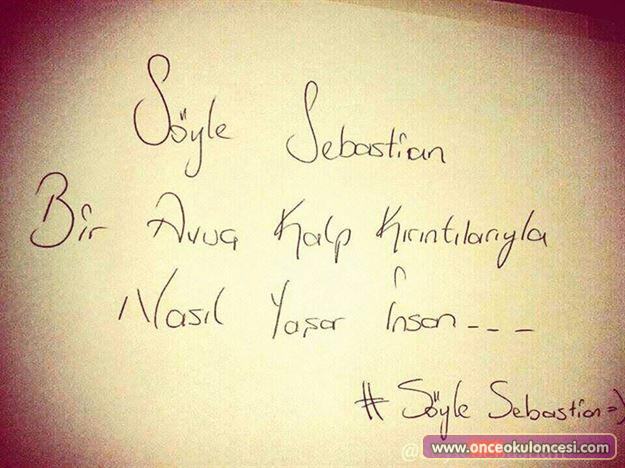 Söyle Sebastian
Bir Avuç Kalp Kırıntılarıyla
Nasıl Yaşar İnsan---
# Söyle Sebastian=)
www.onceokuloncesi.com